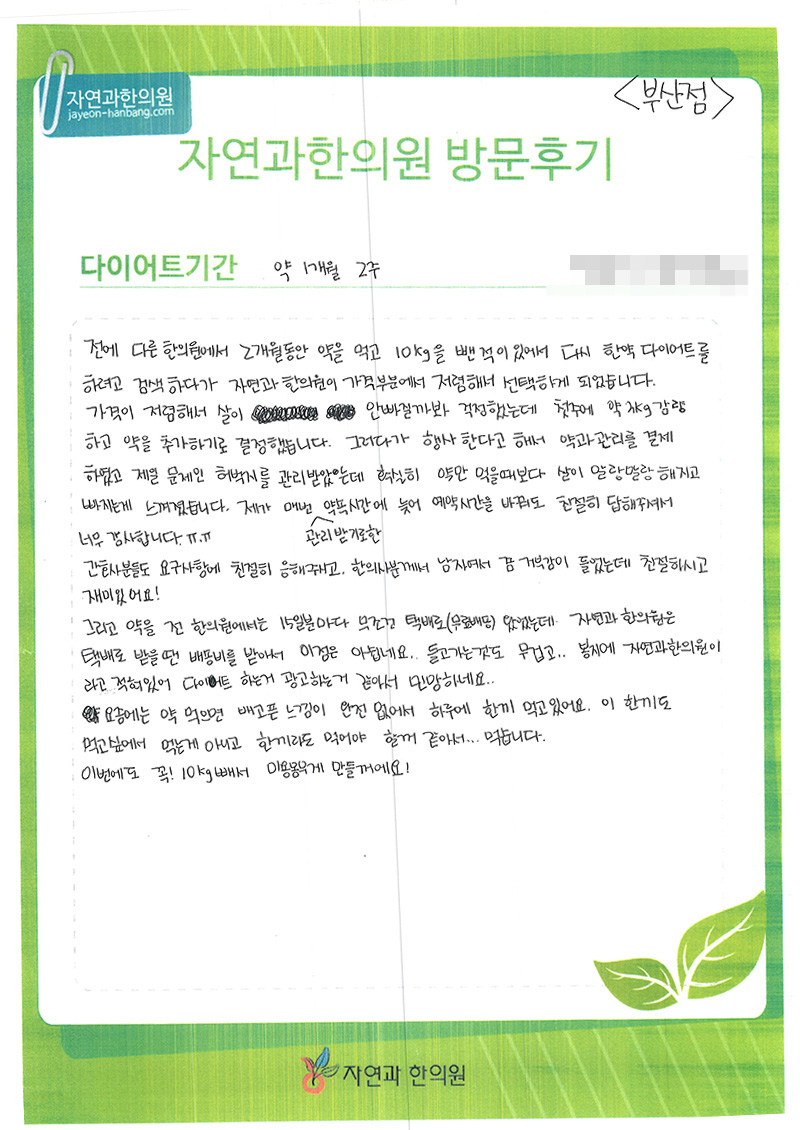 자연과한의원
jayeon-hanbang.com
<부산점>
자연과한의원 방문후기
다이어트기간 약 1개월 2주
전에 다른 한의원에서 2개월동안 약을 먹고 10kg을 뺀적이 있어서 다시 한약 다이어트를
하려고 검색하다가 자연과한의원이 가격부분에서 저렴해서 선택하게 되었습니다.
가격이 저렴해서 살이 안빠질까봐 걱정했는데 첫주에 약 kg감량
하고 약을 추가하기로 결정했습니다. 그러다가 행사한다고 해서 약과관리를 결제
하였고 제일 문제인 허벅지를 관리받았는데 확실히 약만 먹을때보다 살이 말랑말랑해지고
빠지는게 느껴졌습니다. 제가 매번 약속시간에 늦어 예약시간을 바꿔도 친절히 답해주셔서
관리받기로한
너무 감사합니다 ㅠ.ㅠ
간호사분들도 요구사항에 친절히 응해주시고, 한의사분께서 남자여서 꿈 거부감이 들었는데 친절하시고
재미있어요!
그리고 약을 전 한의원에서는 15일분마다 무조건 택배로(무료배송) 왔었는데 자연과한의원은
택배로 받을땐 배송비를 받아서 이점은 아쉽네요.. 들고가는것도 무겁고.. 봉지에 자연과한의원이
라고 적혀있어 다이어트 하는거 광고하는거 같아서 민망하네요..
요즘에는 약 먹으면 배고픈 느낌이 완전 없어서 하루에 한끼 먹고있어요. 이 한끼도
먹고싶어서 먹는게 아니고 한끼라도 먹어야 할꺼 같아서... 먹습니다.
이번에도 꼭! 10kg빼서 미용몸무게 만들꺼에요!
자연과 한의원